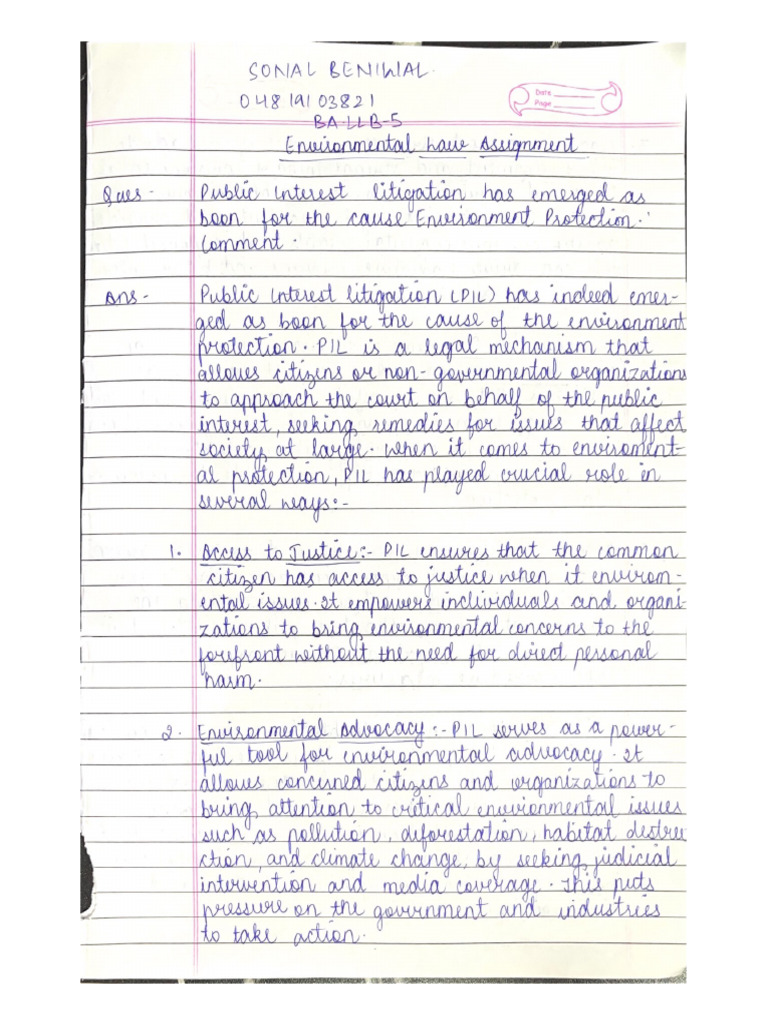 SONAL BENIWAL.
04819103821
Date
Page
BA LLB-5
Environmental Law Assignment
Ques - Public Interest litigation has emerged as
boon for the cause Environment Protection.
Comment.
Ans - Public Interest litigation (PIL) has indeed emer-
ged as boon for the cause of the environment
protection. PIL is a legal mechanism that
allows citizens or non-governmental organizations
to approach the court on behalf of the public
interest, seeking remedies for issues that affect
society at large. When it comes to enviroment-
al protection, PIL has played crucial role in
several ways:-
1. Access to Justice:- PIL ensures that the common
citizen has access to justice when it environ-
ental issues. It empowers individuals and organi-
zations to bring environmental concerns to the
forefront without the need for direct personal
harm.
2. Environmental Advocacy:- PIL serves as a power-
ful tool for environmental advocacy. It
allows concerned citizens and organizations to
bring attention to critical environmental issues
such as pollution, deforestation, habitat destru
ction, and climate change, by seeking judicial
intervention and media coverage. This puts
pressure on the government and industries
to take action.